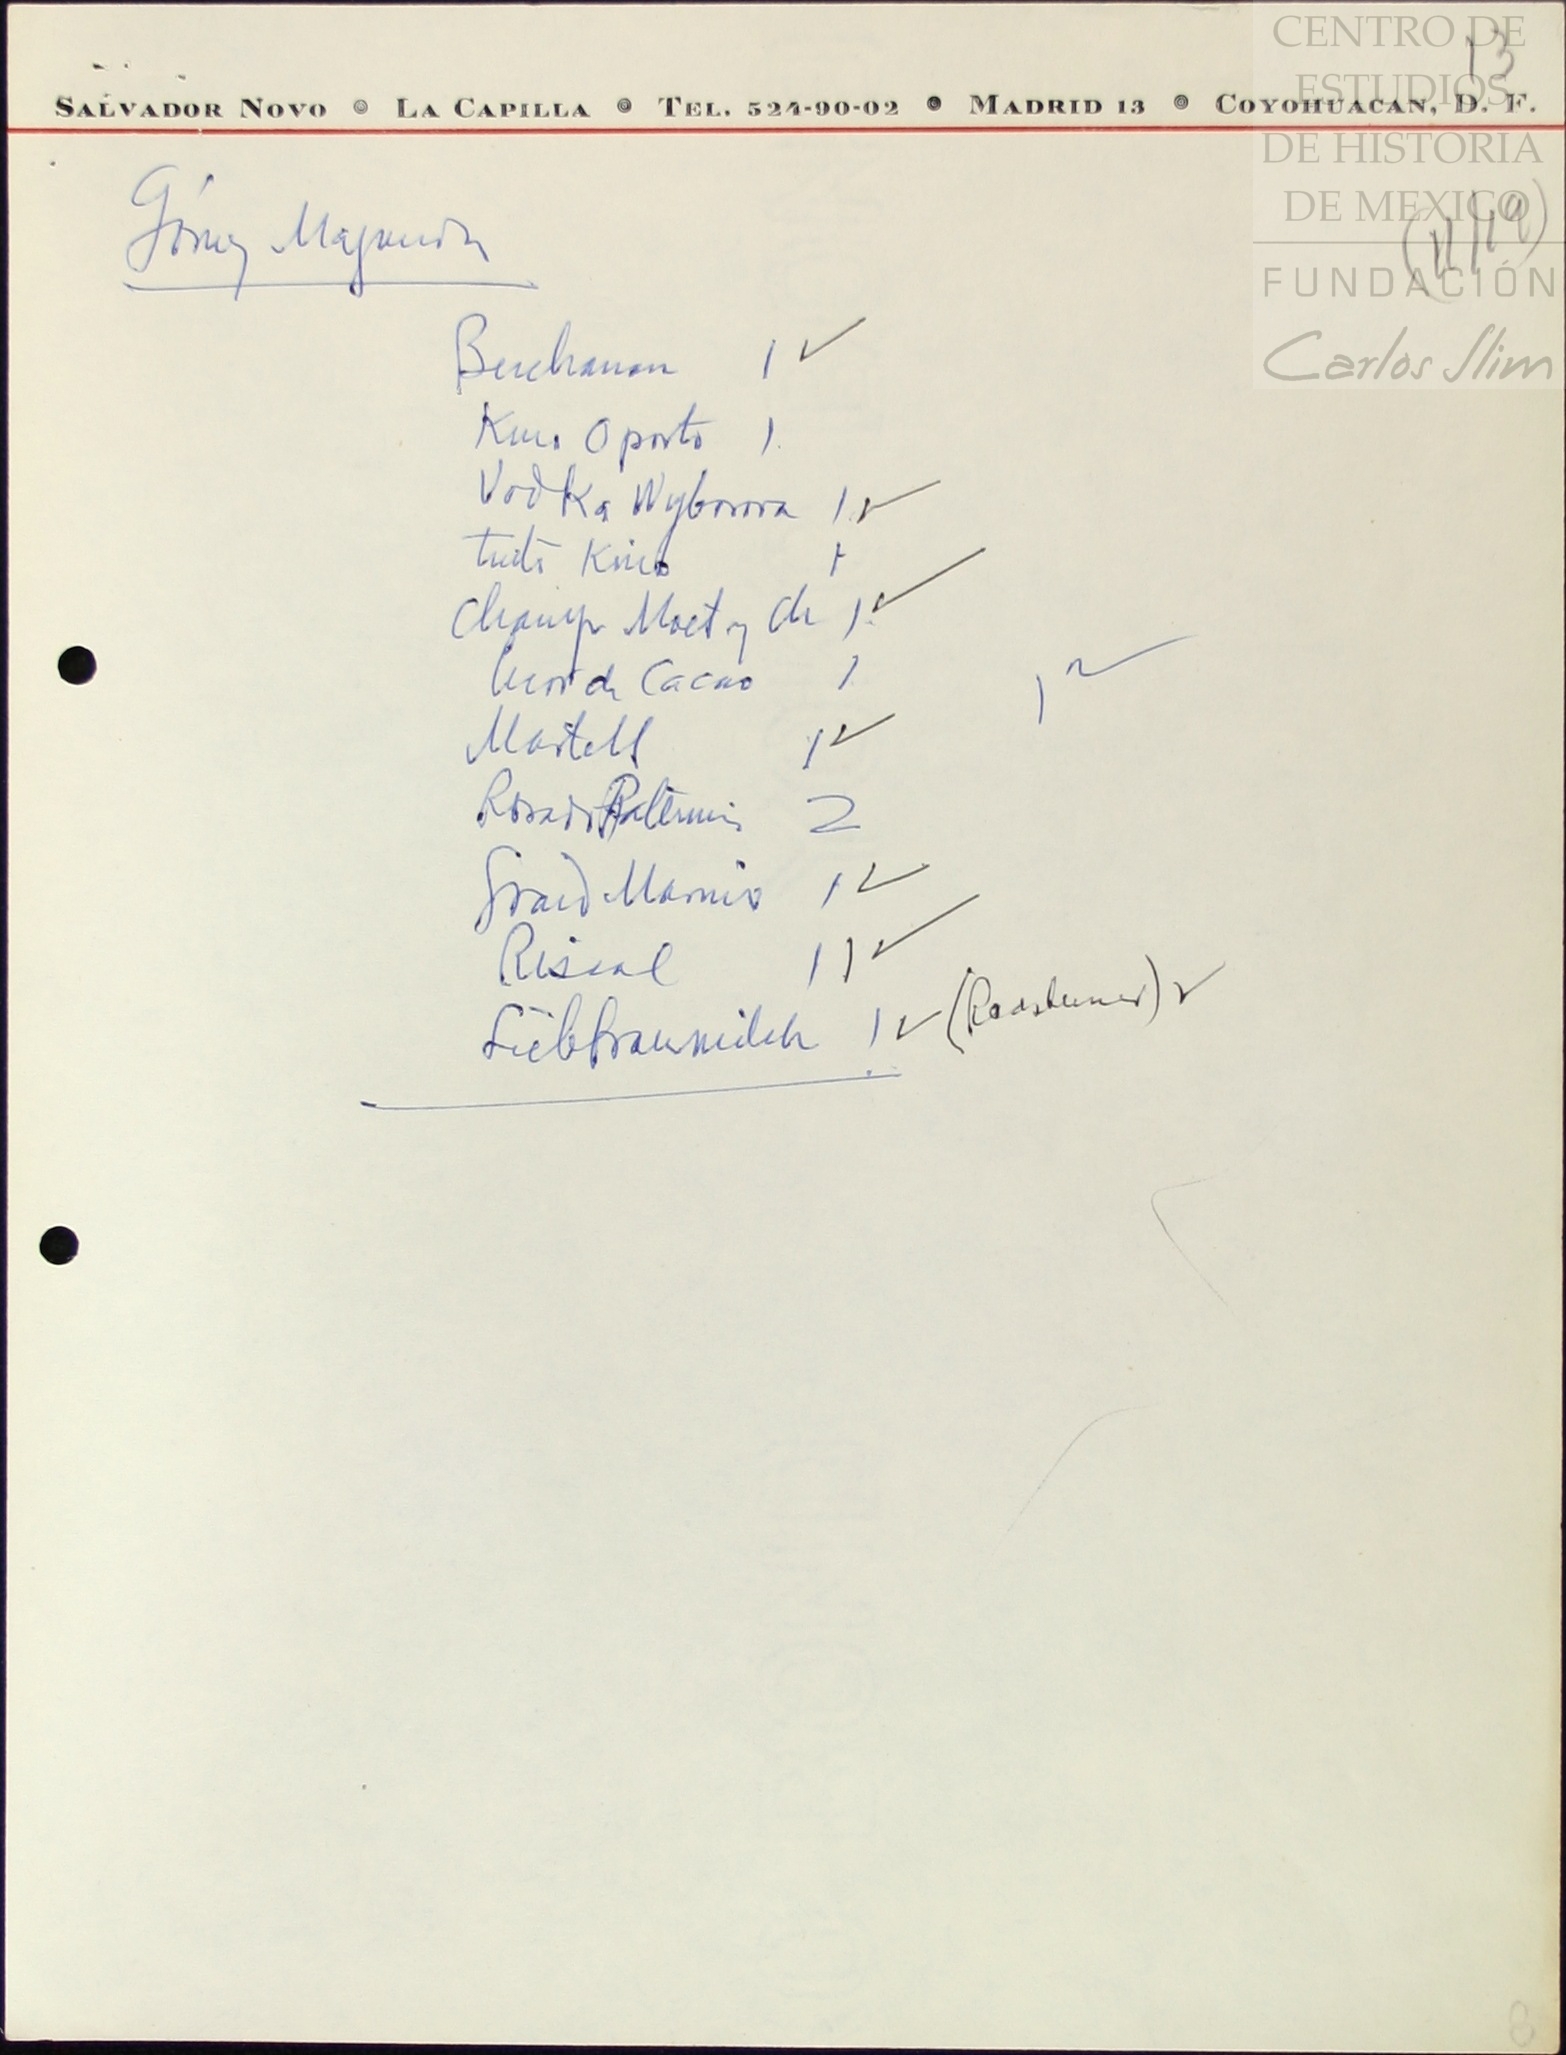 13
SALVADOR NOVO ◎ LA CAPILLA ◎ TEL. 524-90-02 ◎ MADRID 13 ◎ COYOHUACAN, D. F.
CENTRO DE
ESTUDIOS
DE HISTORIA
DE MEXICO
FUNDACIÓN
Carlos Slim
Gómez Maganda
Buchanan 1 ✓
Kino Oporto 1
Vodka Wyborova 1 ✓
tinto Kino 1
Champ Moet y Ch 1 ✓
Cacao 1 1 ✓
Martell 1 ✓
Rosado Paternina 2
Grand Marnier 1 ✓
Riscal 1 1 ✓
Liebfraumilch 1 ✓ ✓
8